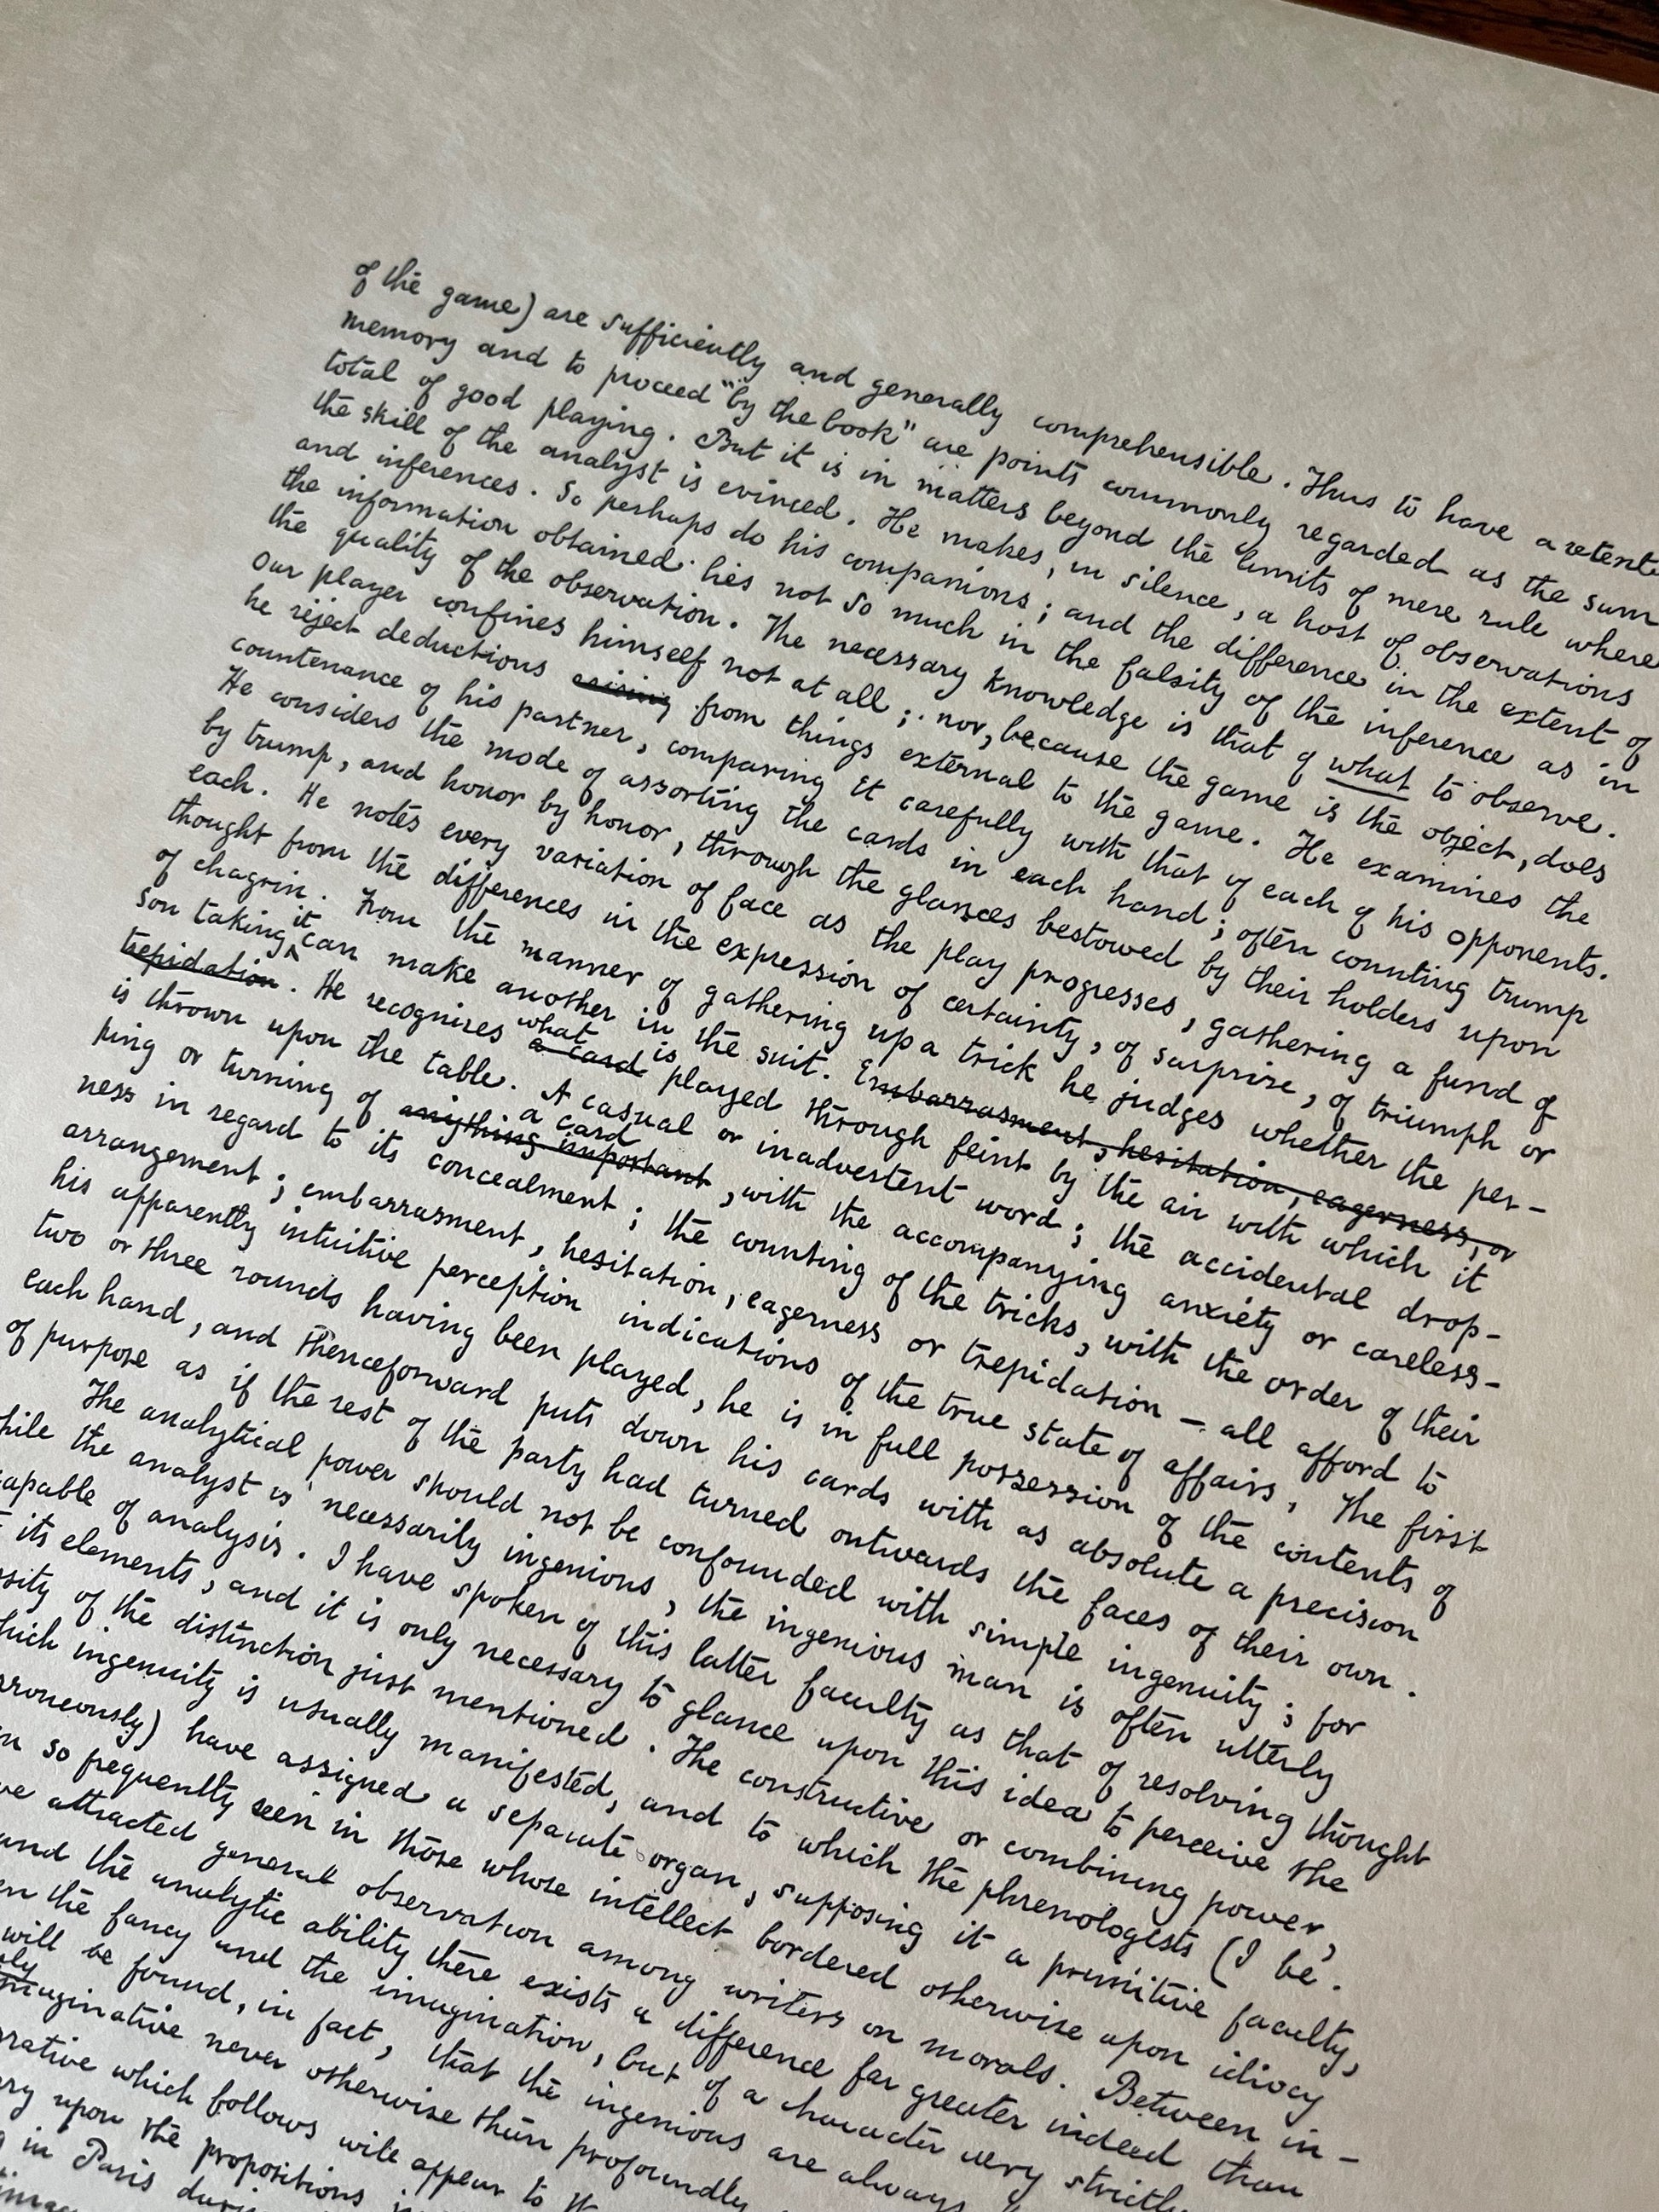 of the game) are sufficiently and generally comprehensible. Thus to have a retent
memory and to proceed "by the book" are points commonly regarded as the sum
total of good playing. But it is in matters beyond the limits of mere rule where
the skill of the analyst is evinced. He makes, in silence, a host of observations
and inferences. So perhaps do his companions; and the difference in the extent of
the information obtained lies not so much in the falsity of the inference as in
the quality of the observation. The necessary knowledge is that of what to observe.
Our player confines himself not at all; nor, because the game is the object, does
he reject deductions arising from things external to the game. He examines the
countenance of his partner, comparing it carefully with that of each of his opponents.
He considers the mode of assorting the cards in each hand; often counting trump
by trump, and honor by honor, through the glances bestowed by their holders upon
each. He notes every variation of face as the play progresses, gathering a fund of
thought from the differences in the expression of certainty, of surprise, of triumph or
of chagrin. From the manner of gathering up a trick he judges whether the per-
son taking it can make another in the suit. Embarrasment, hesitation, eagerness, or
trepidation. He recognises what a card is played through feint by the air with which it
is thrown upon the table. A casual or inadvertent word; the accidental drop-
ping or turning of a card anything important, with the accompanying anxiety or careless-
ness in regard to its concealment; the counting of the tricks, with the order of their
arrangement; embarrasment, hesitation, eagerness or trepidation – all afford to
his apparently intuitive perception indications of the true state of affairs. The first
two or three rounds having been played, he is in full possession of the contents of
each hand, and thenceforward puts down his cards with as absolute a precision
of purpose as if the rest of the party had turned outwards the faces of their own.
The analytical power should not be confounded with simple ingenuity; for
hile the analyst is necessarily ingenious, the ingenious man is often utterly
apable of analysis. I have spoken of this latter faculty as that of resolving thought
its elements, and it is only necessary to glance upon this idea to perceive the
sity of the distinction just mentioned. The constructive or combining power,
hich ingenuity is usually manifested, and to which the phrenologists (I be-
rroneously) have assigned a separate organ, supposing it a primitive faculty,
n so frequently seen in those whose intellect bordered otherwise upon idiocy
ve attracted general observation among writers on morals. Between in-
and the analytic ability there exists a difference far greater indeed than
en the fancy and the imagination, but of a character very strictly
will be found, in fact, that the ingenious are always
ly imaginative never otherwise than profoundly
rrative which follows will appear to
ry upon the propositions
in Paris